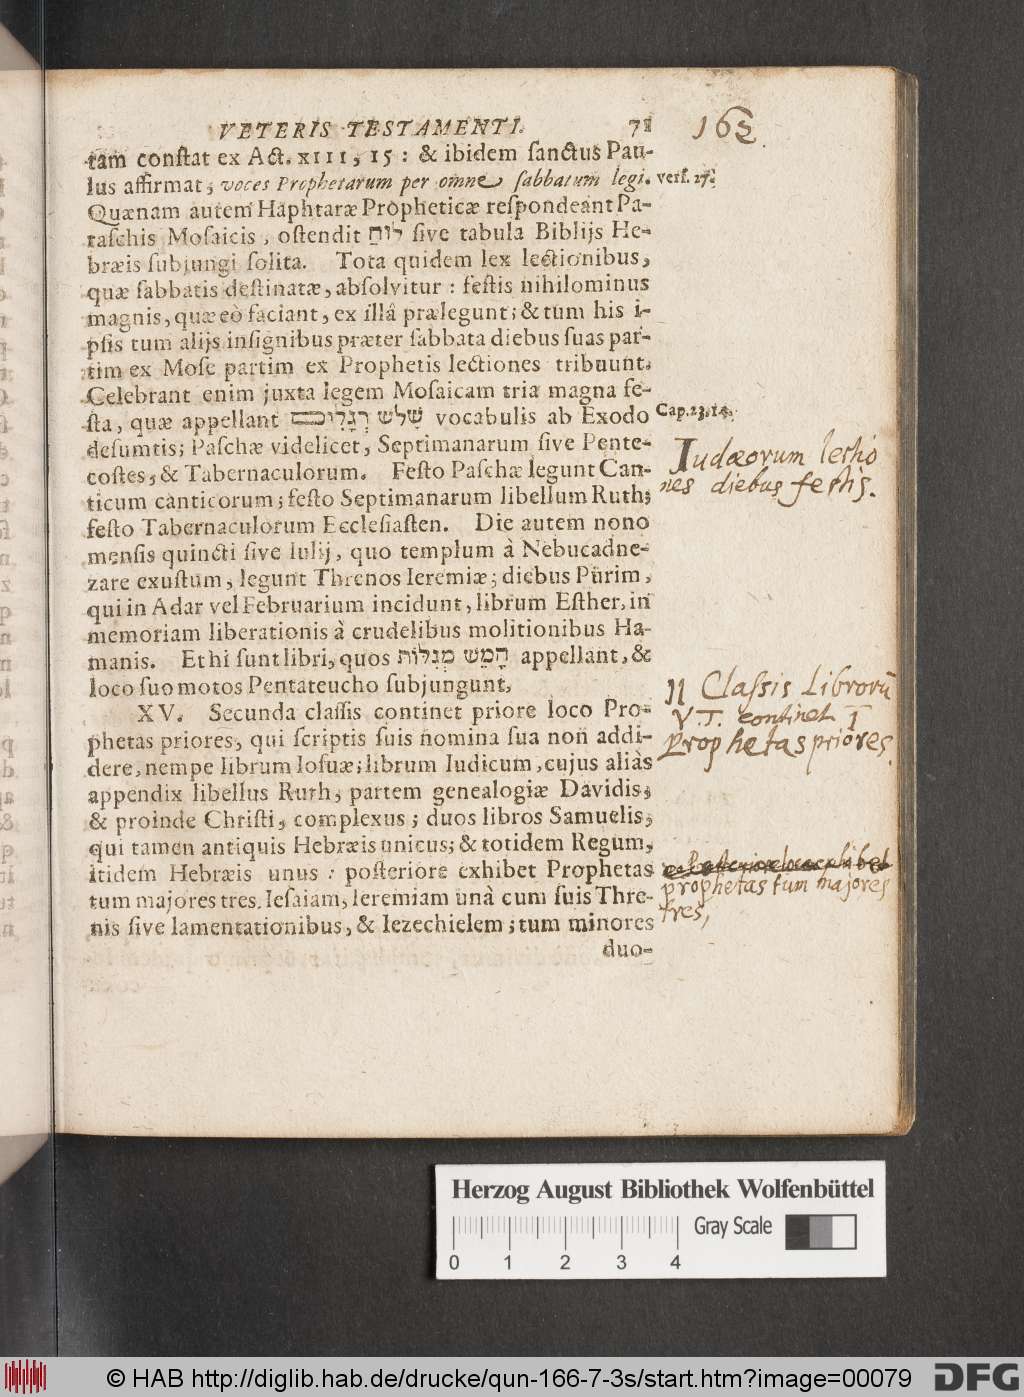 VETERIS TESTAMENTI. 71
163.
tam conſtat ex Act. XIII, 15: & ibidem ſanctus Pau-
lus affirmat, voces Prophetarum per omne ſabbatum legi. verſ. 27.
Quænam autem Haphtaræ Propheticæ reſpondeant Pa-
raſchis Moſaicis, oſtendit לוּחַ ſive tabula Biblijs He-
bræis ſubjungi ſolita. Tota quidem lex lectionibus,
quæ ſabbatis deſtinatæ, abſolvitur: feſtis nihilominus
magnis, quæ eò faciant, ex illâ prælegunt; & tum his i-
pſis tum alijs inſignibus præter ſabbata diebus ſuas par-
tim ex Moſe partim ex Prophetis lectiones tribuunt.
Celebrant enim juxta legem Moſaicam tria magna fe-
ſta, quæ appellant שָׁלֹשׁ רְגָלִים vocabulis ab Exodo
Cap. 23. 14.
deſumtis; Paſchæ videlicet, Septimanarum ſive Pente-
coſtes, & Tabernaculorum. Feſto Paſchæ legunt Can-
ticum canticorum; feſto Septimanarum libellum Ruth;
feſto Tabernaculorum Eccleſiaſten. Die autem nono
menſis quincti ſive Iulij, quo templum à Nebucadne-
zare exuſtum, legunt Threnos Ieremiæ; diebus Pûrim,
qui in Adar vel Februarium incidunt, librum Eſther, in
memoriam liberationis à crudelibus molitionibus Ha-
manis. Et hi ſunt libri, quos חָמֵשׁ מְגִלּוֹת appellant, &
loco ſuo motos Pentateucho ſubjungunt.
XV. Secunda claſſis continet priore loco Pro-
phetas priores, qui ſcriptis ſuis nomina ſua non addi-
dere, nempe librum Ioſuæ; librum Iudicum, cujus aliàs
appendix libellus Ruth, partem genealogiæ Davidis,
& proinde Chriſti, complexus; duos libros Samuelis,
qui tamen antiquis Hebræis unicus; & totidem Regum,
itidem Hebræis unus: poſteriore exhibet Prophetas
tum majores tres, Ieſaiam, Ieremiam unà cum ſuis Thre-
nis ſive lamentationibus, & Iezechielem; tum minores
duo-
Judæorum lectio
nes diebus festis.
II Classis Librorū
V.T. continet I
prophetas priores.
prophetas tum majores
tres,
Herzog August Bibliothek Wolfenbüttel
Gray Scale
0 1 2 3 4
© HAB http://diglib.hab.de/drucke/qun-166-7-3s/start.htm?image=00079
DFG